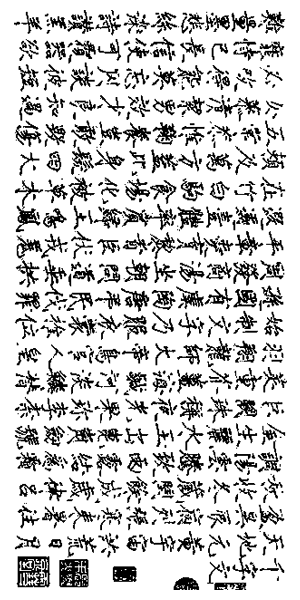 千字文
天地元黃宇宙洪荒日月
盈昃辰宿列張寒來暑往
秋收冬藏閏餘成歲律呂
調陽雲騰致雨露結為霜
金生麗水玉出崑岡劍號
巨闕珠稱夜光果珍李柰
菜重芥薑海鹹河淡鱗潛
羽翔龍師火帝鳥官人皇
始制文字乃服衣裳推位
讓國有虞陶唐弔民伐罪
周發殷湯坐朝問道垂拱
平章愛育黎首臣伏戎羌
遐邇壹體率賓歸王鳴鳳
在竹白駒食場化被草木
賴及萬方蓋此身髮四大
五常恭惟鞠養豈敢毀傷
女慕貞潔男效才良知過
必改得能莫忘罔談彼短
靡恃己長信使可覆器欲
難量墨悲絲染詩讚羔羊